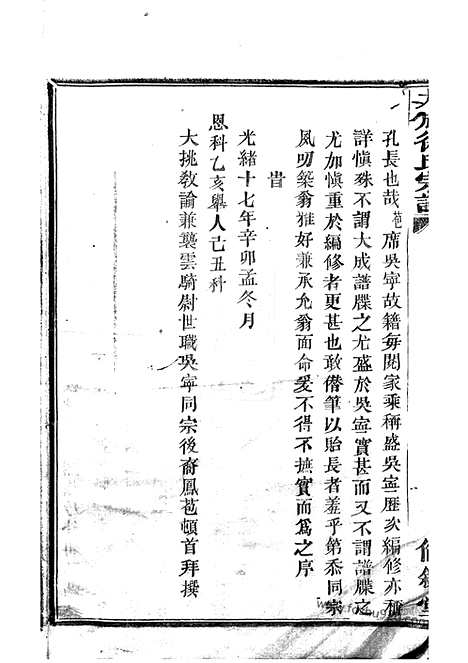 孔長也哉苞席吳寧故籍每閱家乘稱盛吳寧歷次編修亦稱
詳慎殊不謂大成譜牒之尤盛於吳寧實甚而又不謂譜牒之
尤加慎重於編修者更甚也敢僭筆以貽長者羞乎第忝同宗
夙叨築翁雅好兼承允翁面命爰不得不摭實而為之序
旹
光緒十七年辛卯孟冬月
恩科乙亥舉人己丑科
大挑教諭兼襲雲騎尉世職吳寧同宗後裔鳳苞頓首拜撰
氏宗譜